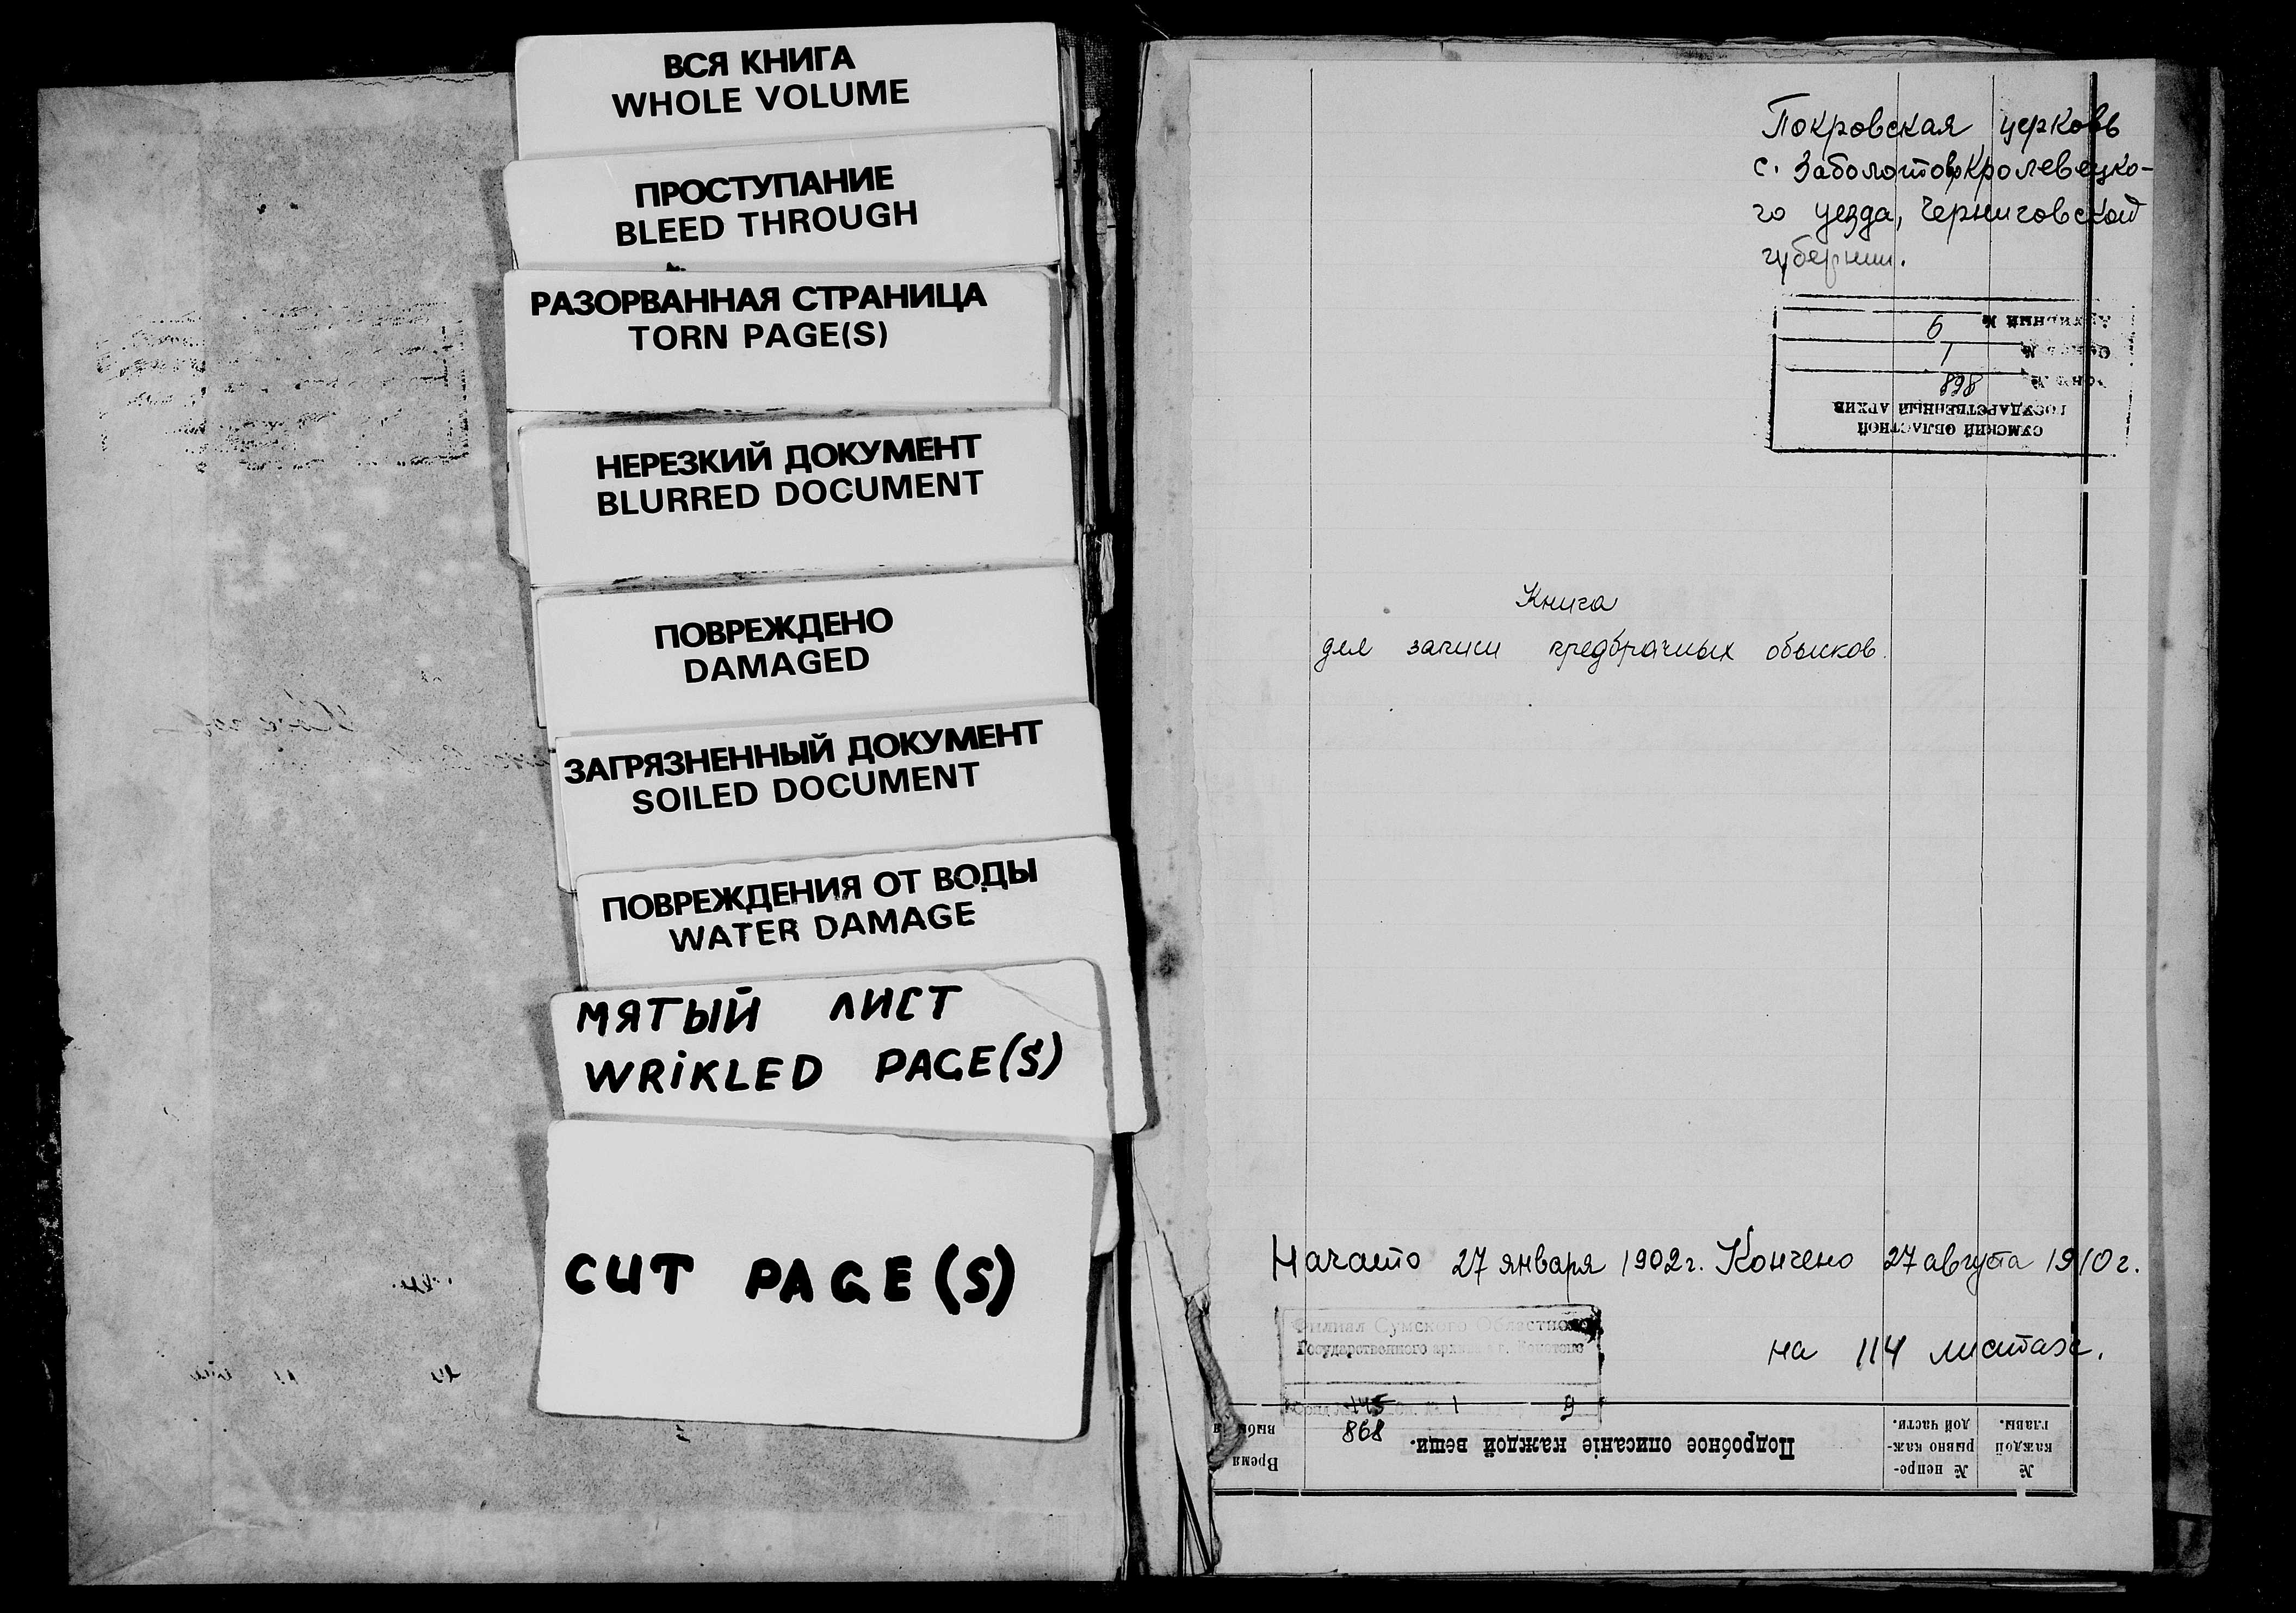 ВСЯ КНИГА
WHOLE VOLUME
ПРОСТУПАНИЕ
BLEED THROUGH
РАЗОРВАННАЯ СТРАНИЦА
TORN PAGE(S)
НЕРЕЗКИЙ ДОКУМЕНТ
BLURRED DOCUMENT
ПОВРЕЖДЕНО
DAMAGED
ЗАГРЯЗНЕННЫЙ ДОКУМЕНТ
SOILED DOCUMENT
ПОВРЕЖДЕНИЯ ОТ ВОДЫ
WATER DAMAGE
МЯТЫЙ ЛИСТ
WRIKLED PAGE(S)
CUT PAGE(S)
Покровская церковь
с. Заболотово Кролевецко-
го уезда, Черниговской
губернии.
СУМСКИЙ ОБЛАСТНОЙ
ГОСУДАРСТВЕННЫЙ АРХИВ
898
1
6
Книга
для записи предбрачных обысков.
Начато 27 января 1902 г. Кончено 27 августа 1910 г.
на 114 листах.
Филиал Сумского Областного
Государственного архива
145 1 9
868
Время
Подробное описаніе каждой вещи.
№ непре-
рывно каж-
дой части.
№
каждой
главы.